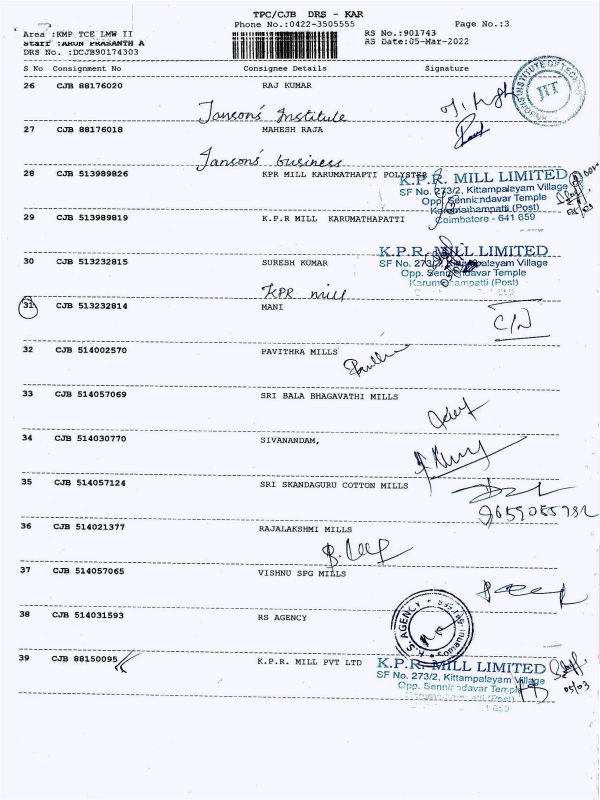 TPC/CJB DRS - KAR
Phone No.:0422-3505555 Page No.:3
Area :KMP TCE LMW II RS No.:901743
Staff :ARUN PRASANTH A RS Date:05-Mar-2022
DRS No. :DCJB90174303
S No Consignment No Consignee Details Signature
26 CJB 88176020 RAJ KUMAR
Jansons' Institute
27 CJB 88176018 MAHESH RAJA
Jansons' business
28 CJB 513989826 KPR MILL KARUMATHAPTI POLYSTER
K.P.R. MILL LIMITED
SF No. 273/2, Kittampalayam Village
Opp. Senniandavar Temple
Karumathampatti (Post)
Coimbatore - 641 659
29 CJB 513989819 K.P.R MILL KARUMATHAPATTI
K.P.R. MILL LIMITED
SF No. 273/2, Kittampalayam Village
Opp. Senniandavar Temple
Karumathampatti (Post)
30 CJB 513232815 SURESH KUMAR
KPR mill
31 CJB 513232814 MANI
C/N
32 CJB 514002570 PAVITHRA MILLS
33 CJB 514057069 SRI BALA BHAGAVATHI MILLS
34 CJB 514030770 SIVANANDAM,
35 CJB 514057124 SRI SKANDAGURU COTTON MILLS
36 CJB 514021377 RAJALAKSHMI MILLS
37 CJB 514057065 VISHNU SPG MILLS
38 CJB 514031593 RS AGENCY
39 CJB 88150095 K.P.R. MILL PVT LTD
K.P.R. MILL LIMITED
SF No. 273/2, Kittampalayam Village
Opp. Senniandavar Temple
05/03